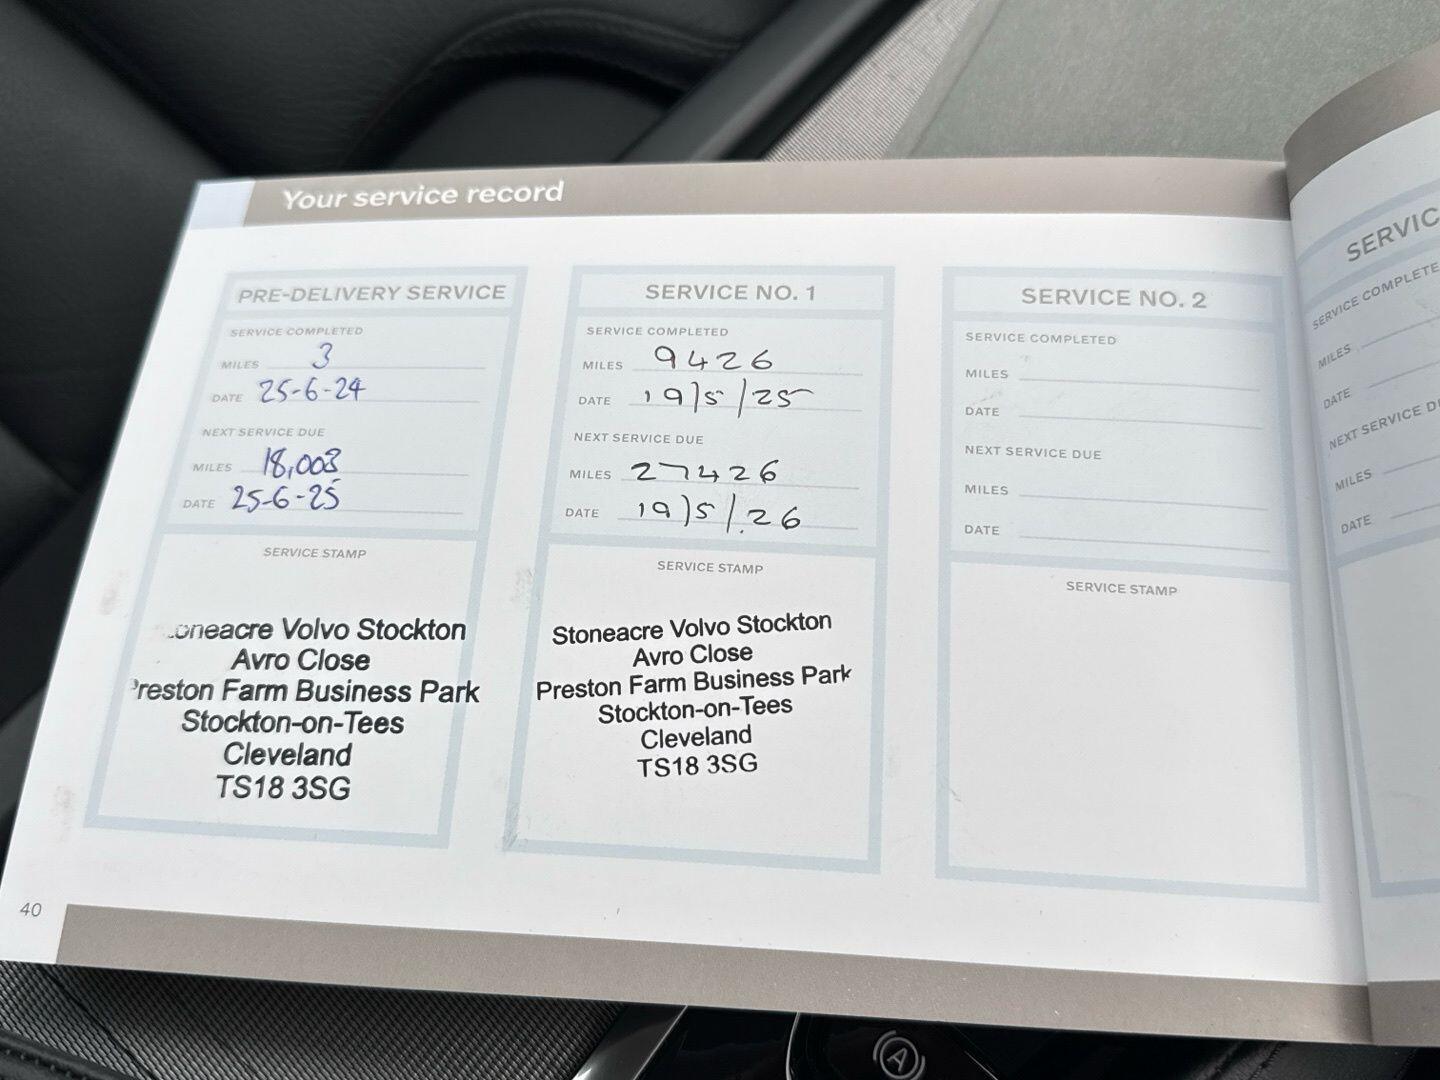 Your service record
PRE-DELIVERY SERVICE
SERVICE COMPLETED
MILES 3
DATE 25-6-24
NEXT SERVICE DUE
MILES 18,003
DATE 25-6-25
SERVICE STAMP
oneacre Volvo Stockton
Avro Close
reston Farm Business Park
Stockton-on-Tees
Cleveland
TS18 3SG
SERVICE NO. 1
SERVICE COMPLETED
MILES 9426
DATE 19/5/25
NEXT SERVICE DUE
MILES 27426
DATE 19/5/26
SERVICE STAMP
Stoneacre Volvo Stockton
Avro Close
Preston Farm Business Park
Stockton-on-Tees
Cleveland
TS18 3SG
SERVICE NO. 2
SERVICE COMPLETED
MILES
DATE
NEXT SERVICE DUE
MILES
DATE
SERVICE STAMP
SERVIC
SERVICE COMPLETE
MILES
DATE
NEXT SERVICE D
MILES
DATE
40
A